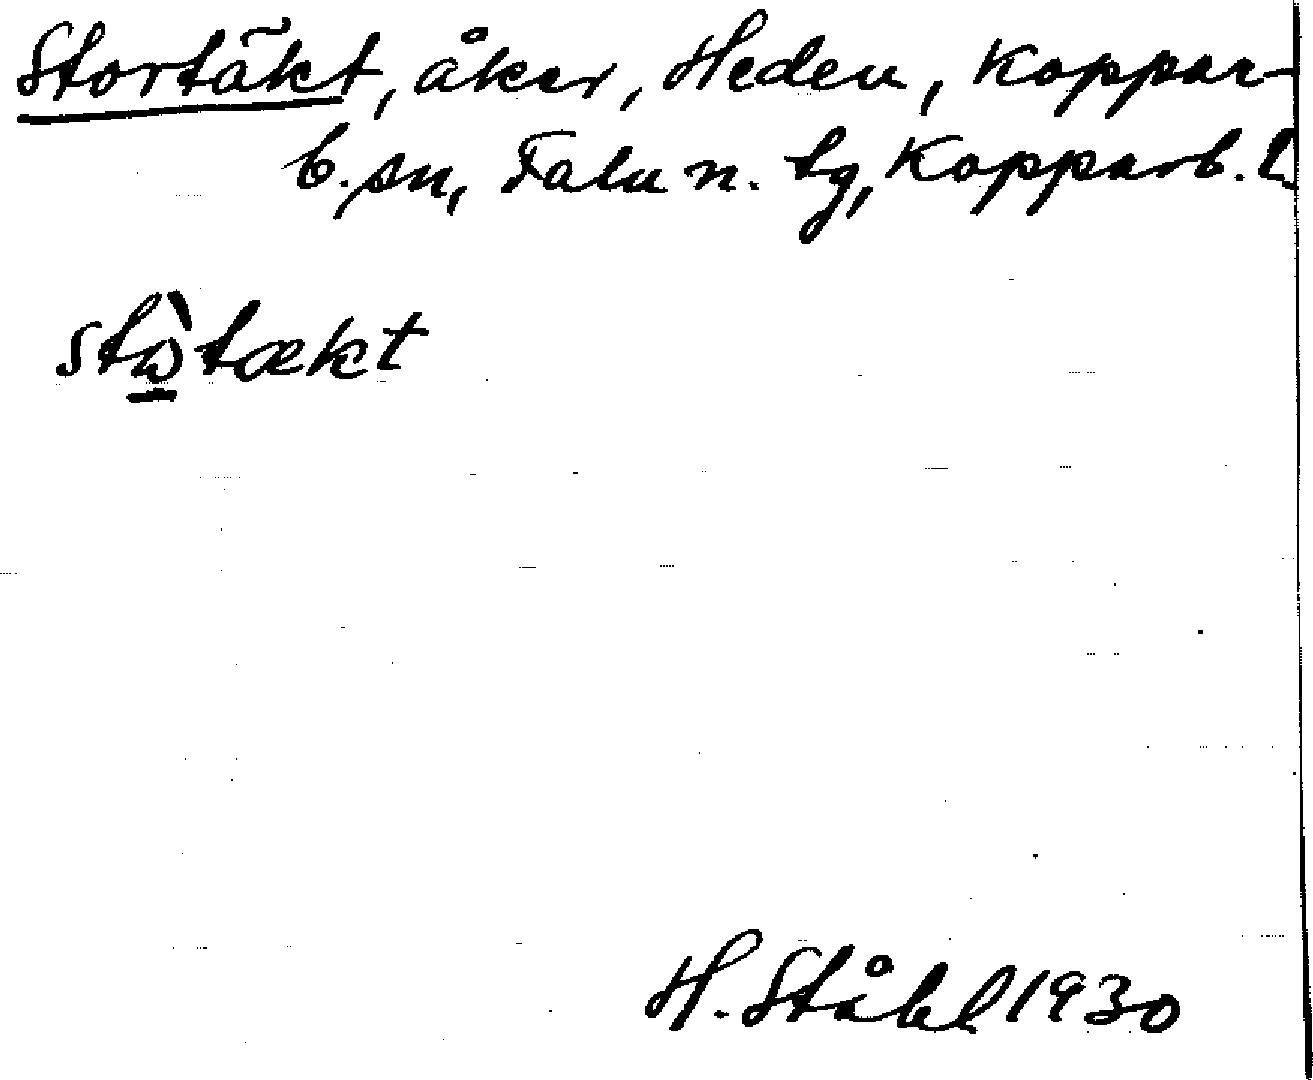 Stortäkt, åker, Heden, Koppar-
b. sn, Falu n. tg, Kopparb. l.
stὼ̲tækt
H. Ståhl 1930